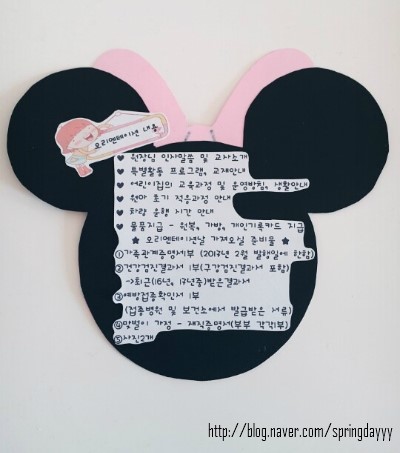 오리엔테이션 내용
♥ 원장님 인사말씀 및 교사소개
♥ 특별활동 프로그램, 교재안내
♥ 어린이집의 교육과정 및 운영방침, 생활안내
♥ 원아 초기 적응과정 안내
♥ 차량 운행 시간 안내
♥ 물품지급 - 원복, 가방, 개인기록카드 지급
★ 오리엔테이션날 가져오실 준비물 ★
①가족관계증명서1부 (2017년 2월 발행일에 한함)
②건강검진결과서 1부(구강검진결과서 포함)
→최근(16년, 17년중)받은결과서
③예방접종확인서 1부
(접종병원 및 보건소에서 발급받은 서류)
④맞벌이 가정 - 재직증명서(부부 각각1부)
⑤사진2개
http://blog.naver.com/springdayyy